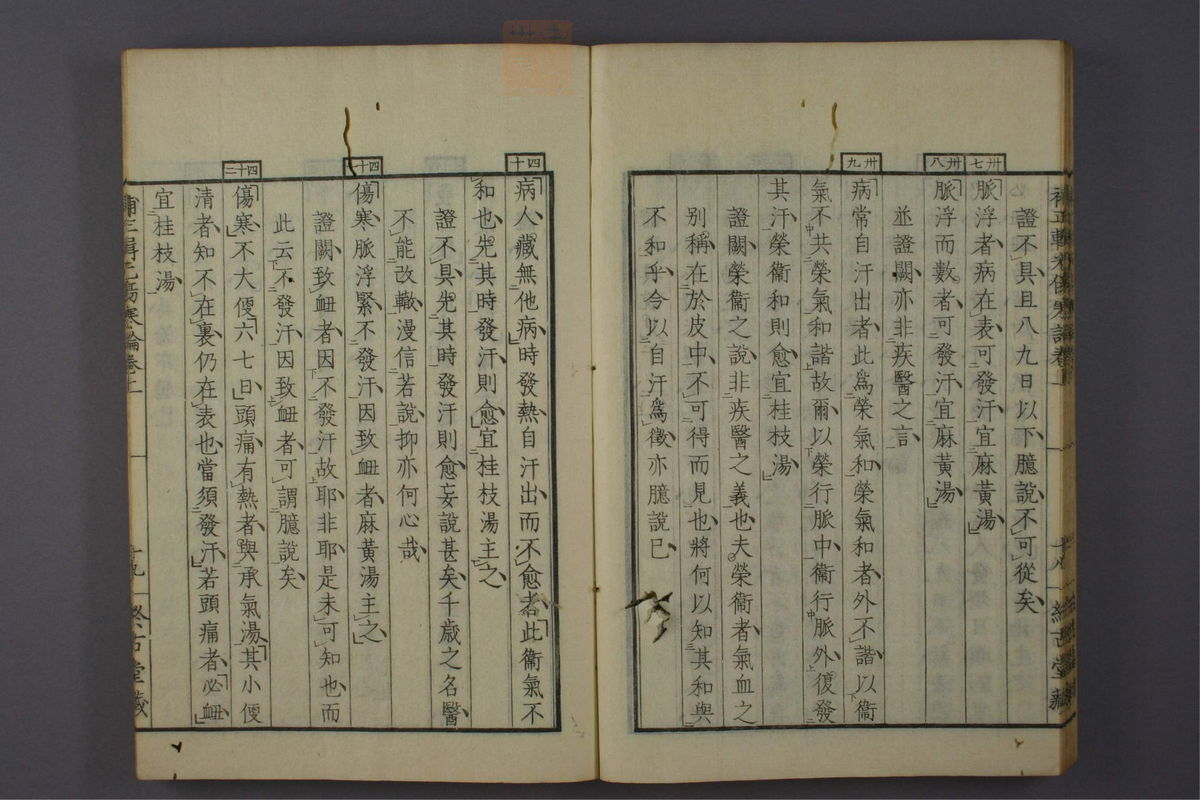 證不具且八九日以下臆說不可從矣
卅七
脈浮者病在表可發汗宜麻黃湯
卅八
脈浮而數者可發汗宜麻黃湯
並證闕亦非疾醫之言
卅九
病常自汗出者此爲榮氣和榮氣和者外不諧以衞
氣不共榮氣和諧故爾以榮行脈中衞行脈外復發
其汗榮衞和則愈宜桂枝湯
證闕榮衞之說非疾醫之義也夫榮衞者氣血之
別稱在於皮中不可得而見也將何以知其和與
不和乎今以自汗爲徵亦臆說已
四十
病人藏無他病時發熱自汗出而不愈者此衞氣不
和也先其時發汗則愈宜桂枝湯主之
證不具先其時發汗則愈妄說甚矣千歲之名醫
不能改轍漫信若說抑亦何心哉
四十一
傷寒脈浮緊不發汗因致衄者麻黃湯主之
證闕致衄者因不發汗故耶非耶是未可知也而
此云不發汗因致衄者可謂臆說矣
四十二
傷寒不大便六七日頭痛有熱者與承氣湯其小便
清者知不在裏仍在表也當須發汗若頭痛者必衄
宜桂枝湯
十九